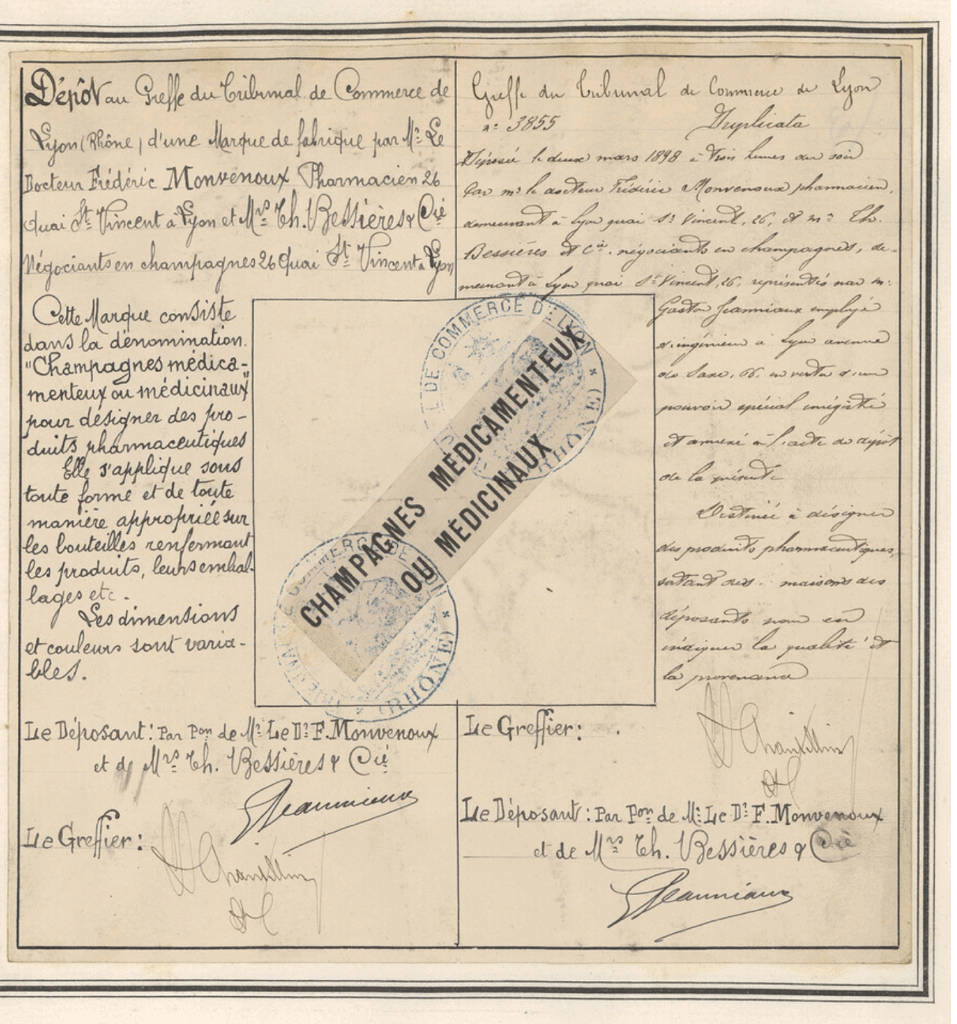 Dépôt au Greffe du Tribunal de Commerce de
Lyon (Rhône) d'une Marque de fabrique par Mr. Le
Docteur Frédéric Monvenoux Pharmacien 26
Quai St. Vincent à Lyon et Mrs. Th. Bessières & Cie
Négociants en champagnes 26 Quai St. Vincent à Lyon
Cette Marque consiste
dans la dénomination
"Champagnes médica-
menteux ou médicinaux"
pour désigner des pro-
duits pharmaceutiques
Elle s'applique sous
toute forme et de toute
manière appropriée sur
les bouteilles renfermant
les produits, leurs embal-
lages etc.
Les dimensions
et couleurs sont varia-
bles.
Le Déposant: Par Pon. de Mr. Le Dr. F. Monvenoux
et de Mrs Th. Bessières & Cie
Jeanniaux
Le Greffier:
CHAMPAGNES MÉDICAMENTEUX
OU MÉDICINAUX
L DE COMMERCE DE LYON
(RHÔNE)
COMMERCE DE LYON
(RHÔNE)
Greffe du Tribunal de Commerce de Lyon
n° 3855 Duplicata
Déposée le deux mars 1898 à trois heures du soir
par mr. le docteur Frédéric Monvenoux, pharmacien,
demeurant à Lyon quai St. Vincent, 26, et mrs. Th.
Bessières et Cie. négociants en champagnes, de-
meurant à Lyon quai St. Vincent, 26, représentés par mr.
Gaston Jeanniaux employé
d'ingénieur à Lyon avenue
de Saxe, 66, en vertu d'un
pouvoir spécial enregistré
et annexé à l'acte de dépôt
de la présente
Destinée à désigner
des produits pharmaceutiques
sortant des maisons des
déposants pour en
indiquer la qualité et
la provenance
Le Greffier:
Le Déposant: Par Pon. de Mr. Le Dr. F. Monvenoux
et de Mrs Th. Bessières & Cie
Jeanniaux